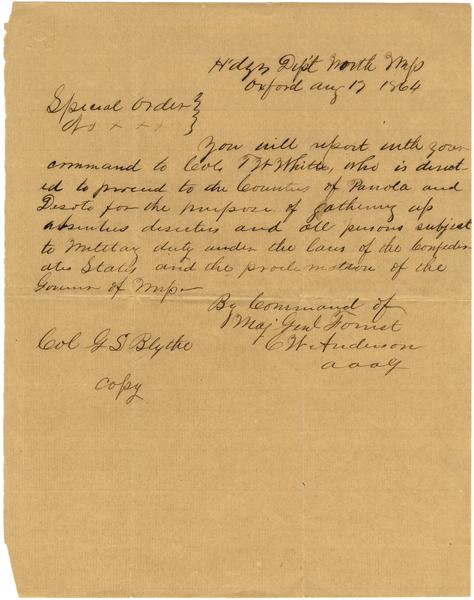 Hdqrs Dept North Miss
Oxford Aug 17 1864
Special Order }
No x x x }
You will report with your
command to Col T W White, who is direct-
ed to proceed to the Counties of Panola and
Desoto for the purpose of gathering up
absentees deserters and all persons subject
to Military duty under the laws of the Confeder-
ates States and the proclamation of the
Governor of Miss
By Command of
Maj Genl Forrest
C W Anderson
a a a G
Col G S Blythe
Copy